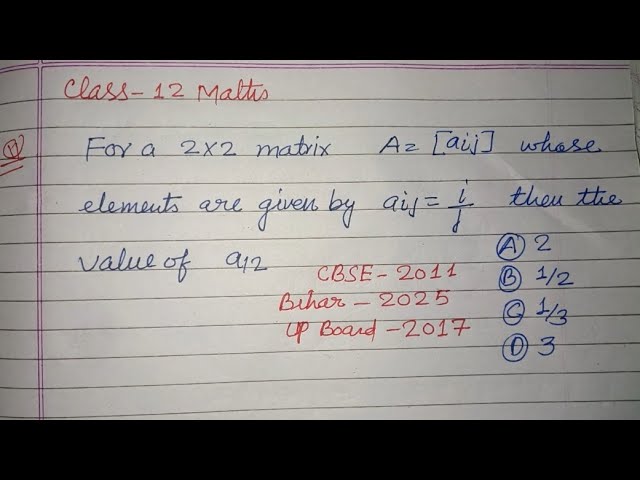 Class - 12 Maths
Q For a 2×2 matrix A = [aij] whose
elements are given by aij = i/j then the
value of a12
(A) 2
(B) 1/2
(C) 1/3
(D) 3
CBSE - 2011
Bihar - 2025
UP Board - 2017